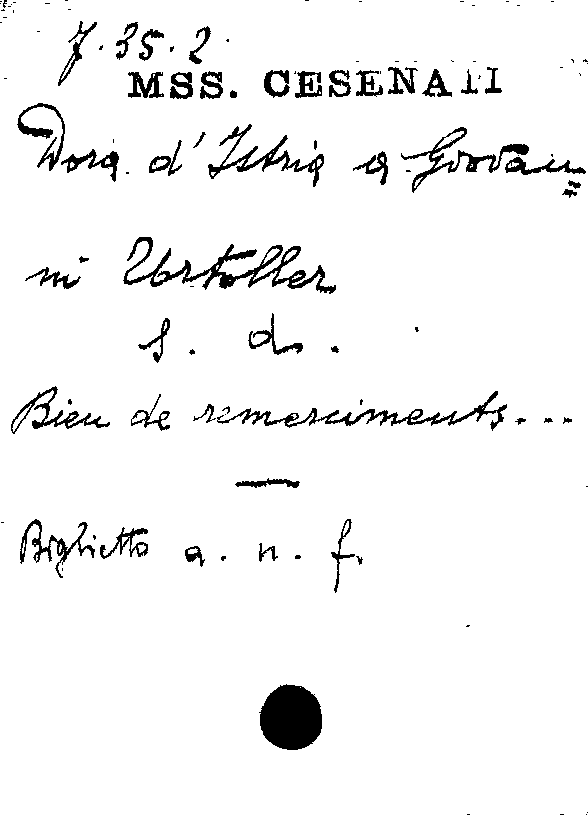 7.35.2
MSS. CESENATI
Dora d'Istria a Giovan=
ni Urtoller
s. d.
Bien de remerciments...
Biglietto a. n. f.